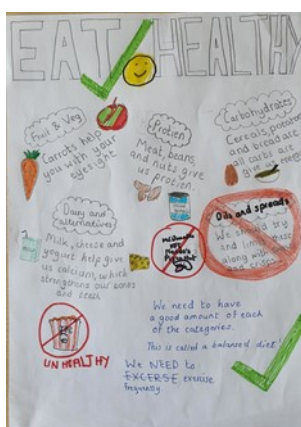 EAT HEALTHY
Fruit & Veg
Carrots help
you with your
eyesight
Protien
Meat, beans,
and nuts give
us protien.
Carbohydrates
Cereals, potatoes
and bread are
all carbs
give us
Dairy and
alternatives
Milk, cheese and
yogurt help give
us calcium, which
strengthens our bones
and teeth
Oils and spreads
We should try
and limit these
along with
and crisps
UNHEALTHY
We need to have
a good amount of each
of the categories.
This is called a balanced diet.
We NEED to
EXCERSE exercise
frequently.